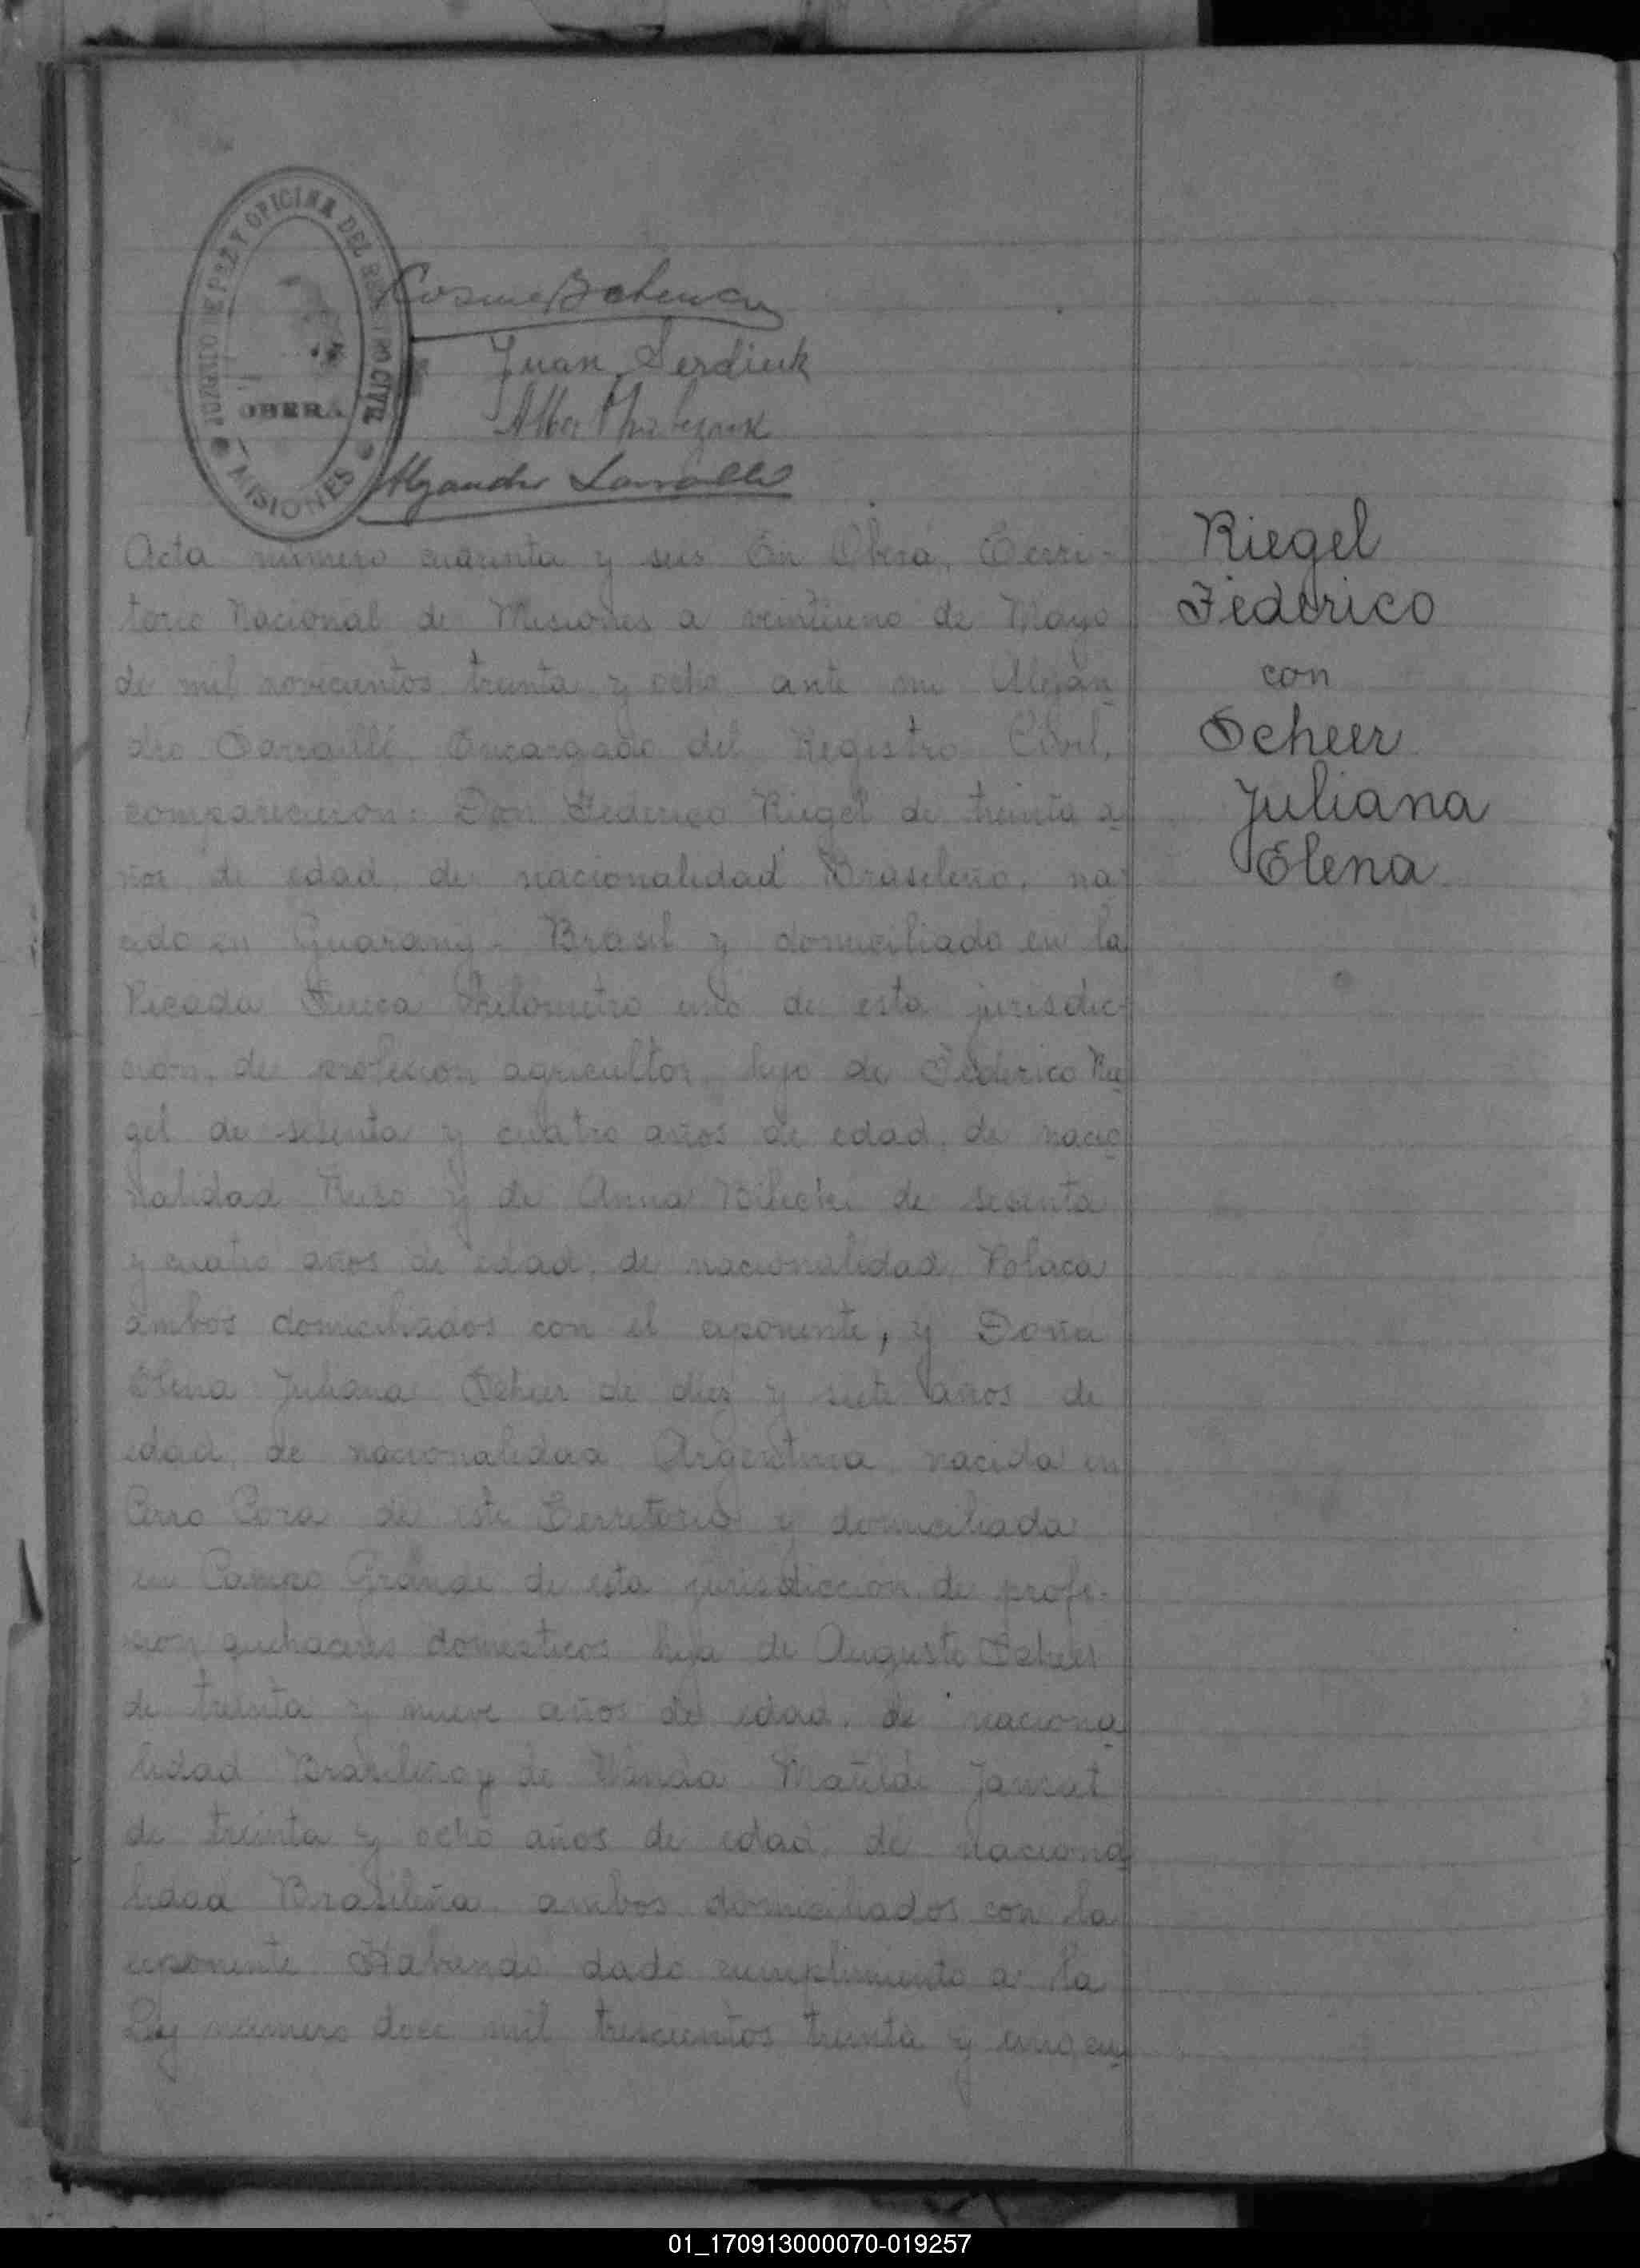 JUZGADO DE PAZ Y OFICINA DEL REGISTRO CIVIL
OBERÁ
MISIONES
Juan Serdiuk
Alejandro
Acta número cuarenta y seis En Oberá, Terri-
torio Nacional de Misiones a veintiuno de Mayo
de mil novecientos treinta y ocho ante mi Alejan
dro Encargado del Registro Civil,
comparecieron: Don Federico Riegel de treinta a
ños de edad, de nacionalidad Brasileño, na
cido en Guarany - Brasil y domiciliado en la
Picada Sueca Kilometro uno de esta jurisdic-
cion, de profesion agricultor, hijo de Federico Rie
gel de sesenta y cuatro años de edad, de nacio
nalidad Ruso y de Anna de sesenta
y cuatro años de edad, de nacionalidad Polaca
ambos domiciliados con el exponente, y Doña
Elena Juliana Scheer de diez y siete años de
edad, de nacionalidad Argentina nacida en
Cerro Cora de este Territorio y domiciliada
en Campo Grande de esta jurisdiccion, de profe-
sion quehaceres domesticos hija de Augusto Scheer
de treinta y nueve años de edad, de naciona
lidad Brasileño y de Wanda Matilde
de treinta y ocho años de edad, de naciona
lidad Brasileña ambos domiciliados con la
exponente Habiendo dado cumplimiento a la
Ley número doce mil trescientos treinta y uno, en
Riegel
Federico
con
Scheer
Juliana
Elena
01_170913000070-019257